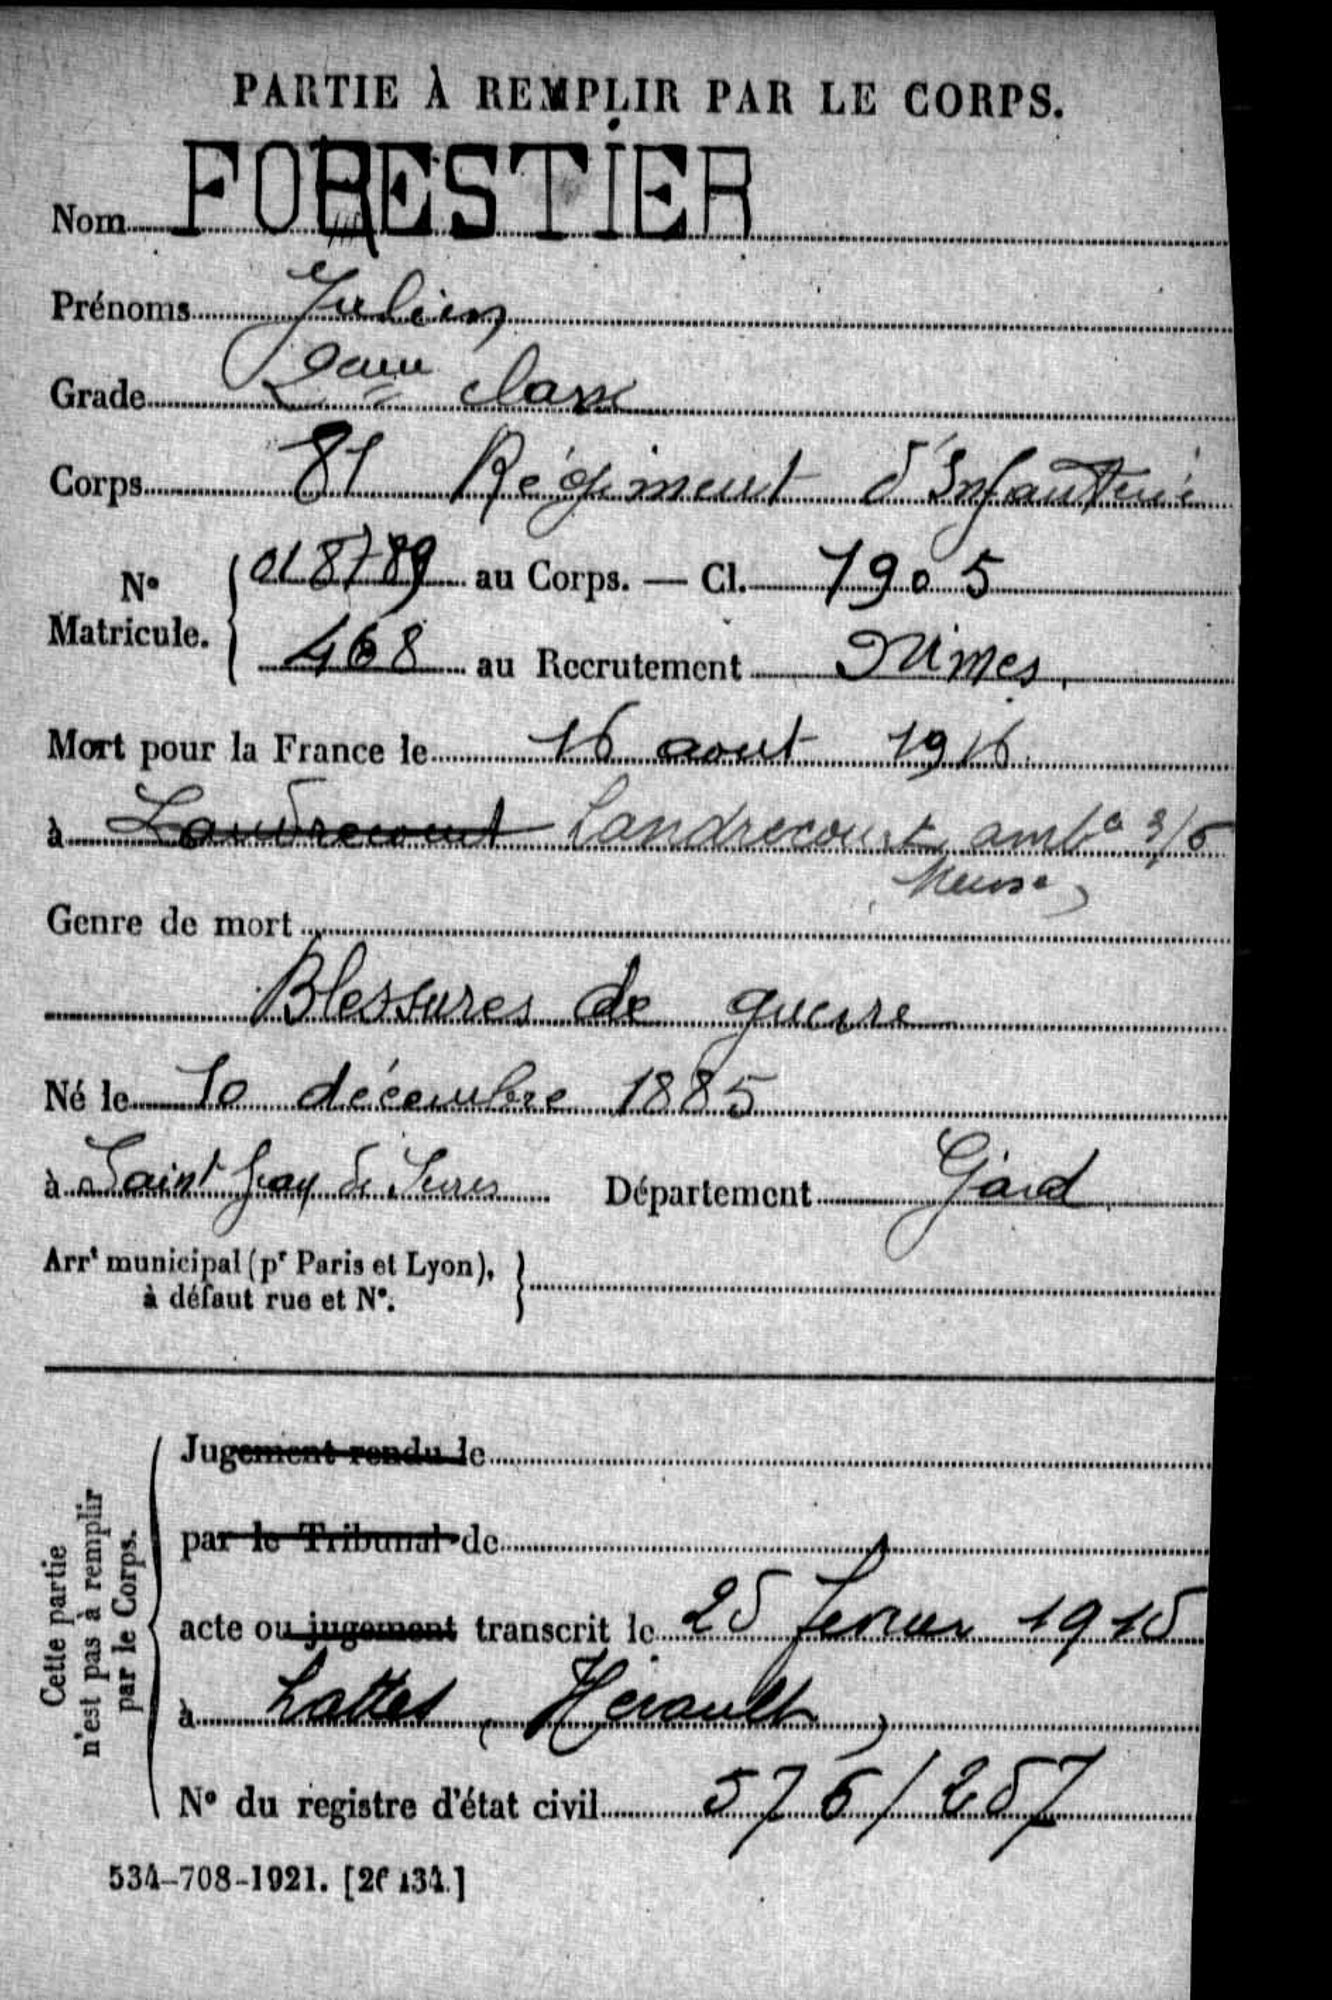 PARTIE À REMPLIR PAR LE CORPS.
Nom FORESTIER
Prénoms Julien
Grade 2eme classe
Corps 81 Régiment d'Infanterie
N° Matricule. 018789 au Corps. — Cl. 1905
468 au Recrutement Nîmes.
Mort pour la France le 16 aout 1916.
à Landrecourt Landrecourt ambce 3/5
Meuse
Genre de mort
Blessures de guerre
Né le 10 décembre 1885
à Saint Jean de Serres Département Gard
Arrt municipal (pr Paris et Lyon),
à défaut rue et N°.
Cette partie
n'est pas à remplir
par le Corps.
Jugement rendu le
par le Tribunal de
acte ou jugement transcrit le 25 fevrier 1915
à Lattes, Herault
N° du registre d'état civil 576/257
534-708-1921. [26134.]